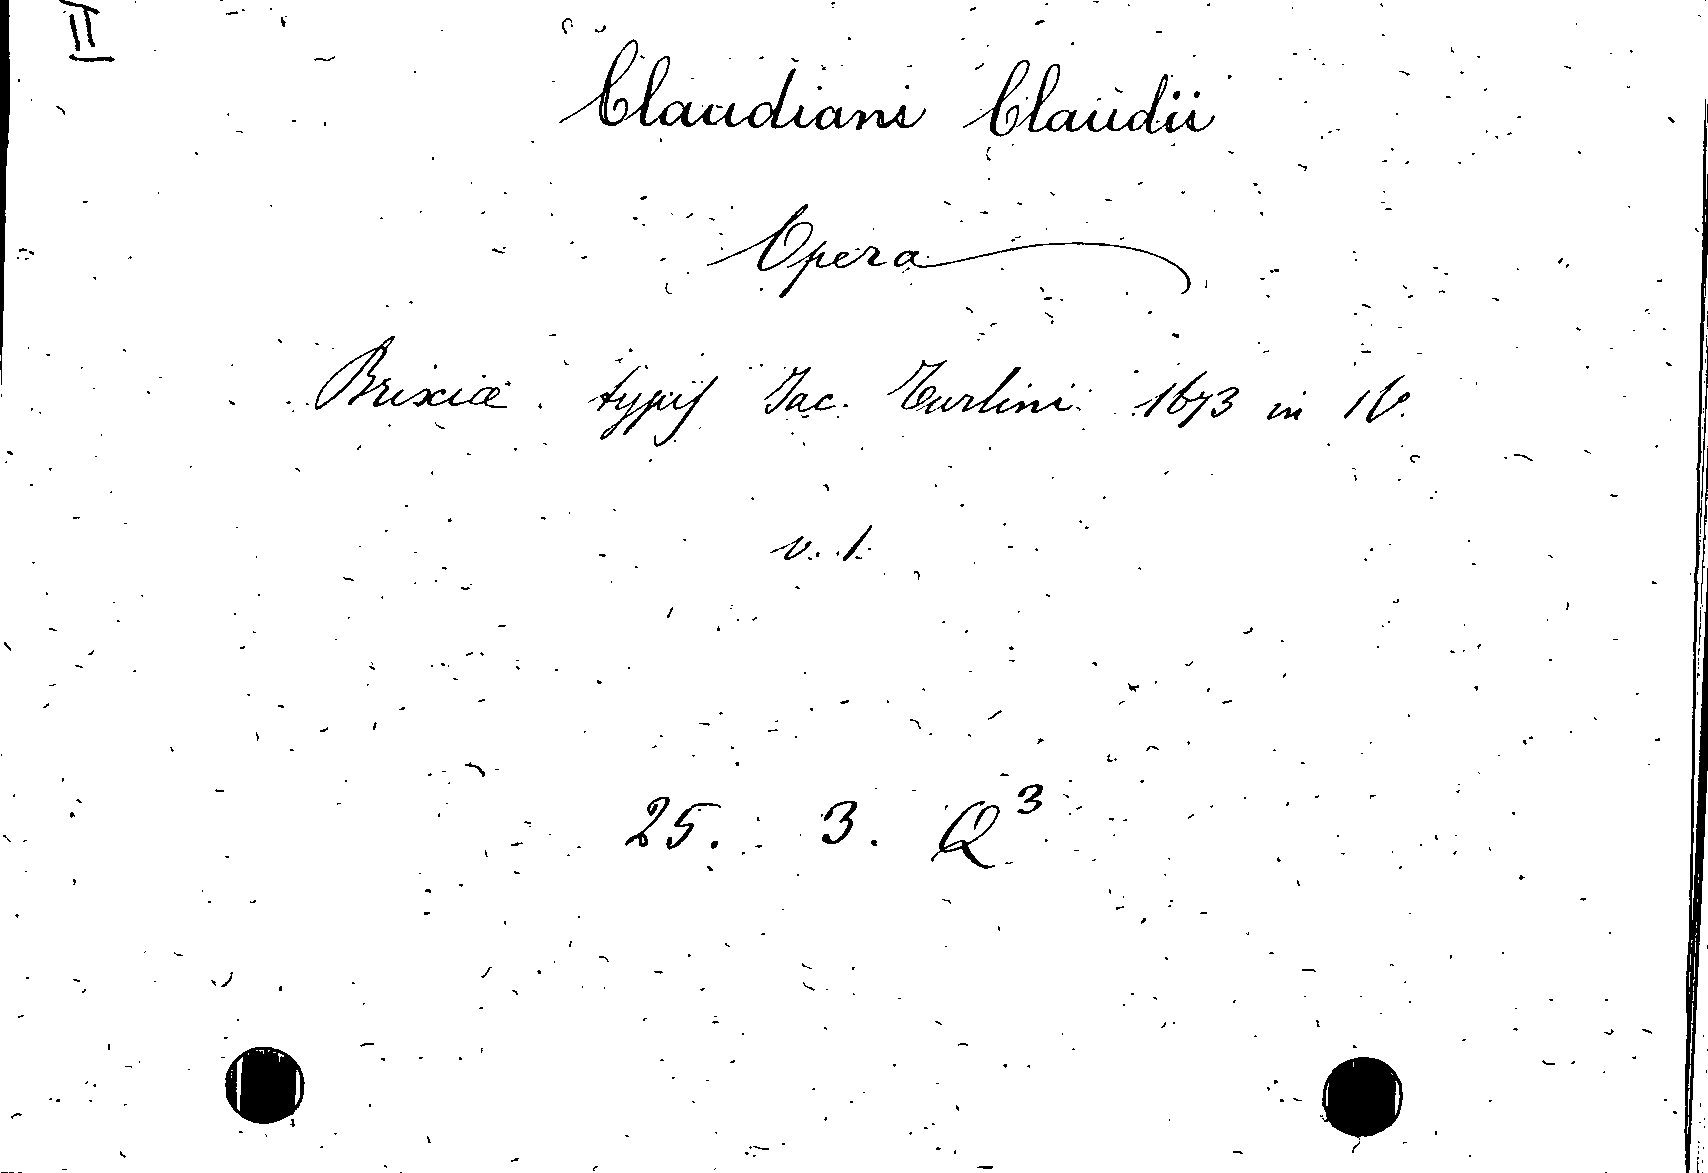 II
Claudiani Claudii
Opera
Brixiæ typis Jac. Turlini 1673 in 16.
v. 1.
25. 3. Q³